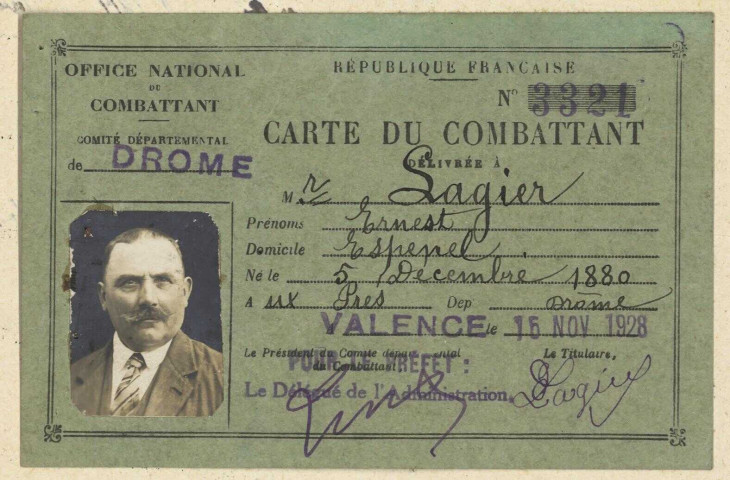 OFFICE NATIONAL
DU
COMBATTANT
COMITÉ DÉPARTEMENTAL
de DROME
RÉPUBLIQUE FRANÇAISE
N° 3321
CARTE DU COMBATTANT
DÉLIVRÉE À
M r Lagier
Prénoms Ernest
Domicile Espenel
Né le 5 Décembre 1880
A ux Prés Dep Drôme
VALENCE le 15 NOV 1928
Le Président du Comité départemental
du Combattant
POUR LE PREFET :
Le Délégué de l'Administration,
Le Titulaire,
Lagier